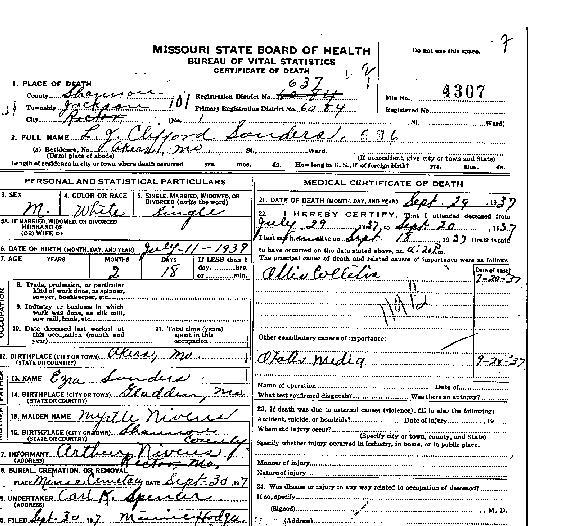 MISSOURI STATE BOARD OF HEALTH
BUREAU OF VITAL STATISTICS
CERTIFICATE OF DEATH
Do not use this space.
1. PLACE OF DEATH
County Shannon
Registration District No. 637
File No. 4307
Township Jackson 101
Primary Registration District No. 6084
Registered No.
City Rector No. St. Ward)
2. FULL NAME L. J. Clifford Sanders. 536
(a) Residence, No. Akers, Mo St. Ward.
(Usual place of abode) (If nonresident, give city or town and State)
Length of residence in city or town where death occurred yrs. mos. ds. How long in U. S., if of foreign birth? yrs. mos. ds.
PERSONAL AND STATISTICAL PARTICULARS
3. SEX M.
4. COLOR OR RACE White
5. SINGLE, MARRIED, WIDOWED, OR DIVORCED (write the word) Single
5A. IF MARRIED, WIDOWED, OR DIVORCED
HUSBAND OF
(OR) WIFE OF
6. DATE OF BIRTH (MONTH, DAY, AND YEAR) July-11-1937
7. AGE YEARS MONTHS 2 DAYS 18 If LESS than 1 day, hrs. or min.
8. Trade, profession, or particular kind of work done, as spinner, sawyer, bookkeeper, etc.
9. Industry or business in which work was done, as silk mill, saw mill, bank, etc.
10. Date deceased last worked at this occupation (month and year)
11. Total time (years) spent in this occupation
12. BIRTHPLACE (CITY OR TOWN) Akers, Mo.
(STATE OR COUNTRY)
13. NAME Ezra Sanders
14. BIRTHPLACE (CITY OR TOWN)
(STATE OR COUNTRY)
15. MAIDEN NAME Myrtle Nivens
16. BIRTHPLACE (CITY OR TOWN) Shannon County
(STATE OR COUNTRY)
17. INFORMANT Arthur Nivens
(ADDRESS) Rector Mo.
18. BURIAL, CREMATION, OR REMOVAL
PLACE Cemetery DATE Sept-30 1937
19. UNDERTAKER Carl K. Spencer
(ADDRESS)
20. FILED Sept-30 1937 Hodge
MEDICAL CERTIFICATE OF DEATH
21. DATE OF DEATH (MONTH, DAY, AND YEAR) Sept. 29 1937
22. I HEREBY CERTIFY, That I attended deceased from
July 29 1937, to Sept 20 1937
I last saw h alive on Sept 18 1937 death is said
to have occurred on the date stated above, at m.
The principal cause of death and related causes of importance were as follows:
Date of onset
9-20-37
Other contributory causes of importance:
Otitis Media 9-20-37
Name of operation Date of
What test confirmed diagnosis? Was there an autopsy?
23. If death was due to external causes (violence), fill in also the following:
Accident, suicide, or homicide? Date of injury , 19
Where did injury occur?
(Specify city or town, county, and State)
Specify whether injury occurred in industry, in home, or in public place.
Manner of injury
Nature of injury
24. Was disease or injury in any way related to occupation of deceased?
If so, specify
(Signed) , M. D.
(Address)